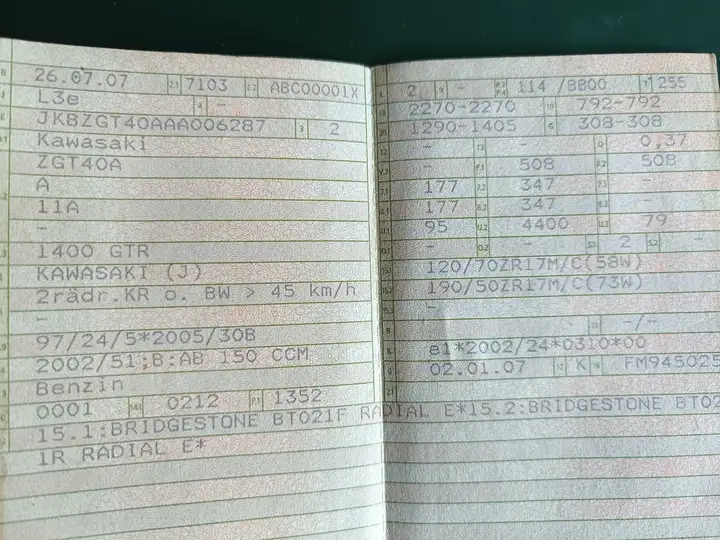 B 26.07.07 2.1 7103 2.2 ABC00001X
J L3e 4 -
E JKBZGT40AAA006287 3 2
D.1 Kawasaki
ZGT40A
A
D.2 11A
-
D.3 1400 GTR
2 KAWASAKI (J)
5 2rädr.KR o. BW > 45 km/h
-
V.9 97/24/5*2005/30B
14 2002/51;B:AB 150 CCM
P.3 Benzin
10 0001 14.1 0212 P.1 1352
22 15.1:BRIDGESTONE BT021F RADIAL E*15.2:BRIDGESTONE BT02
1R RADIAL E*
L 2 9 - P.2 P.4 114 /8800 T 255
18 2270-2270 19 792-792
20 1290-1405 G 308-308
12 - 13 - Q 0,37
V.7 - F.1 508 F.2 508
7.1 177 7.2 347 7.3 -
8.1 177 8.2 347 8.3 -
U.1 95 U.2 4400 U.3 79
O.1 - O.2 - S.1 2 S.2 -
15.1 120/70ZR17M/C(58W)
15.2 190/50ZR17M/C(73W)
15.3 -
R - 11 -/-
K e1*2002/24*0310*00
6 02.01.07 17 K 16 FM945025
21